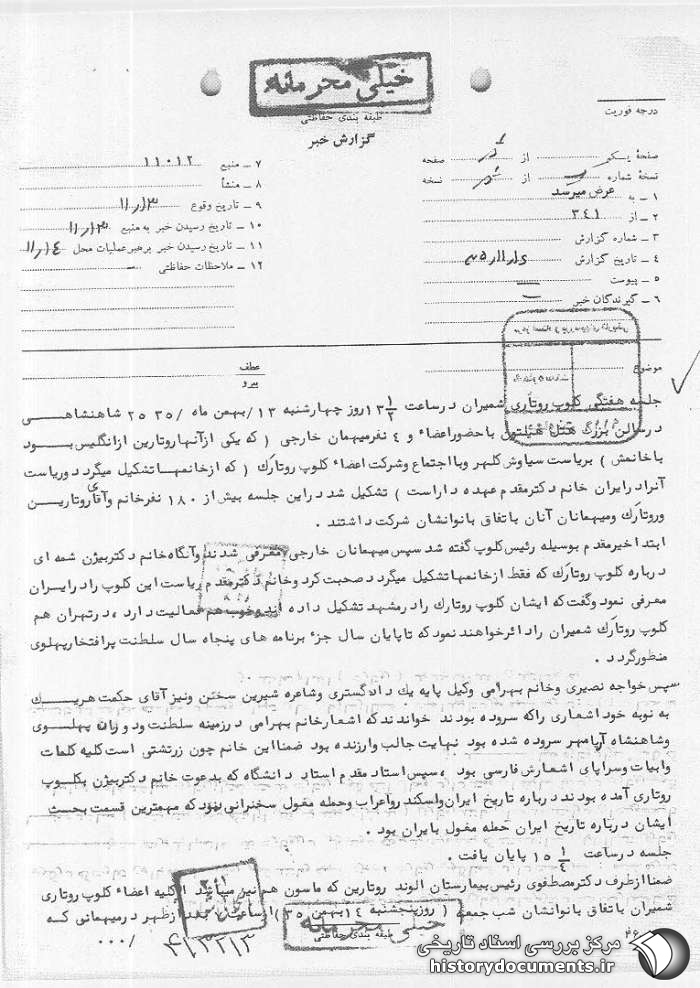 خیلی محرمانه
طبقه بندی حفاظتی
گزارش خبر
درجه فوریت
صفحه یک از صفحه
نسخه شماره از نسخه
۱ ـ به عرض میرسد
۲ ـ از ۳۴۱
۳ ـ شماره گزارش
۴ ـ تاریخ گزارش
۵ ـ پیوست
۶ ـ گیرندگان خبر
۷ ـ منبع ۱۱۰۱۲
۸ ـ منشأ
۹ ـ تاریخ وقوع ۱۱/۱۳
۱۰ ـ تاریخ رسیدن خبر به منبع ۱۱/۱۳
۱۱ ـ تاریخ رسیدن خبر برهبر عملیات محل ۱۱/۱۴
۱۲ ـ ملاحظات حفاظتی ـ
موضوع
عطف
پیرو
جلسه هفتگی کلوپ روتاری شمیران درساعت ۱۳ ۱/۲ روز چهارشنبه ۱۳/بهمن ماه /۲۵۳۵ شاهنشاهی
درسالن بزرگ هتل هیلتون باحضوراعضاء و ۴ نفرمیهمان خارجی ( که یکی ازآنهاروتارین ازانگلیس بود
باخانمش ) بریاست سیاوش کلهر وبااجتماع وشرکت اعضاء کلوپ روتارک ( که ازخانمهاتشکیل میگردد وریاست
آنرادرایران خانم دکترمقدم عهده داراست ) تشکیل شد دراین جلسه بیش از ۱۸۰ نفرخانم وآقای روتارین
وروتارک ومیهمانان آنان باتفاق بانوانشان شرکت داشتند .
ابتدا خیرمقدم بوسیله رئیس کلوپ گفته شد سپس میهمانان خارجی معرفی شدند وآنگاه خانم دکتربیژن شمه ای
درباره کلوپ روتارک که فقط ازخانمهاتشکیل میگردد صحبت کرد وخانم دکترمقدم ریاست این کلوپ رادرایران
معرفی نمود وگفت که ایشان کلوپ روتارک رادرمشهد تشکیل داده اند وخوب هم فعالیت دارد ، درتهران هم
کلوپ روتارک شمیران رادائرخواهند نمود که تاپایان سال جزء برنامه های پنجاه سال سلطنت پرافتخارپهلوی
منظورگردد .
سپس خواجه نصیری وخانم بهرامی وکیل پایه یک دادگستری وشاعره شیرین سخن ونیز آقای حکمت هریک
به نوبه خود اشعاری راکه سروده بودند خواندند که اشعارخانم بهرامی درزمینه سلطنت دودمان پهلوی
وشاهنشاه آریامهر سروده شده بود نهایت جالب وارزنده بود ضمنااین خانم چون زرتشتی است کلیه کلمات
وابیات وسراپای اشعارش فارسی بود ، سپس استاد مقدم استاد دانشگاه که بدعوت خانم دکتربیژن بکلوپ
روتاری آمده بودند درباره تاریخ ایران واسکندر واعراب وحمله مغول سخنرانی نمود که مهمترین قسمت بحث
ایشان درباره تاریخ ایران حمله مغول بایران بود .
جلسه درساعت ۱۵ ۱/۴ پایان یافت .
ضمنا ازطرف دکترمصطفوی رئیس بیمارستان الوند روتارین که ماسون هم نیز میباشد ازکلیه اعضاء کلوپ روتاری
شمیران باتفاق بانوانشان شب جمعه ( روزپنجشنبه ۱۴ بهمن ۳۵ ) ازساعت بعد ازظهر درمیهمانی که
۰۰۰/
خیلی محرمانه
طبقه بندی حفاظتی
۴۱۳۲۱۳
مرکز بررسی اسناد تاریخی
historydocuments.ir